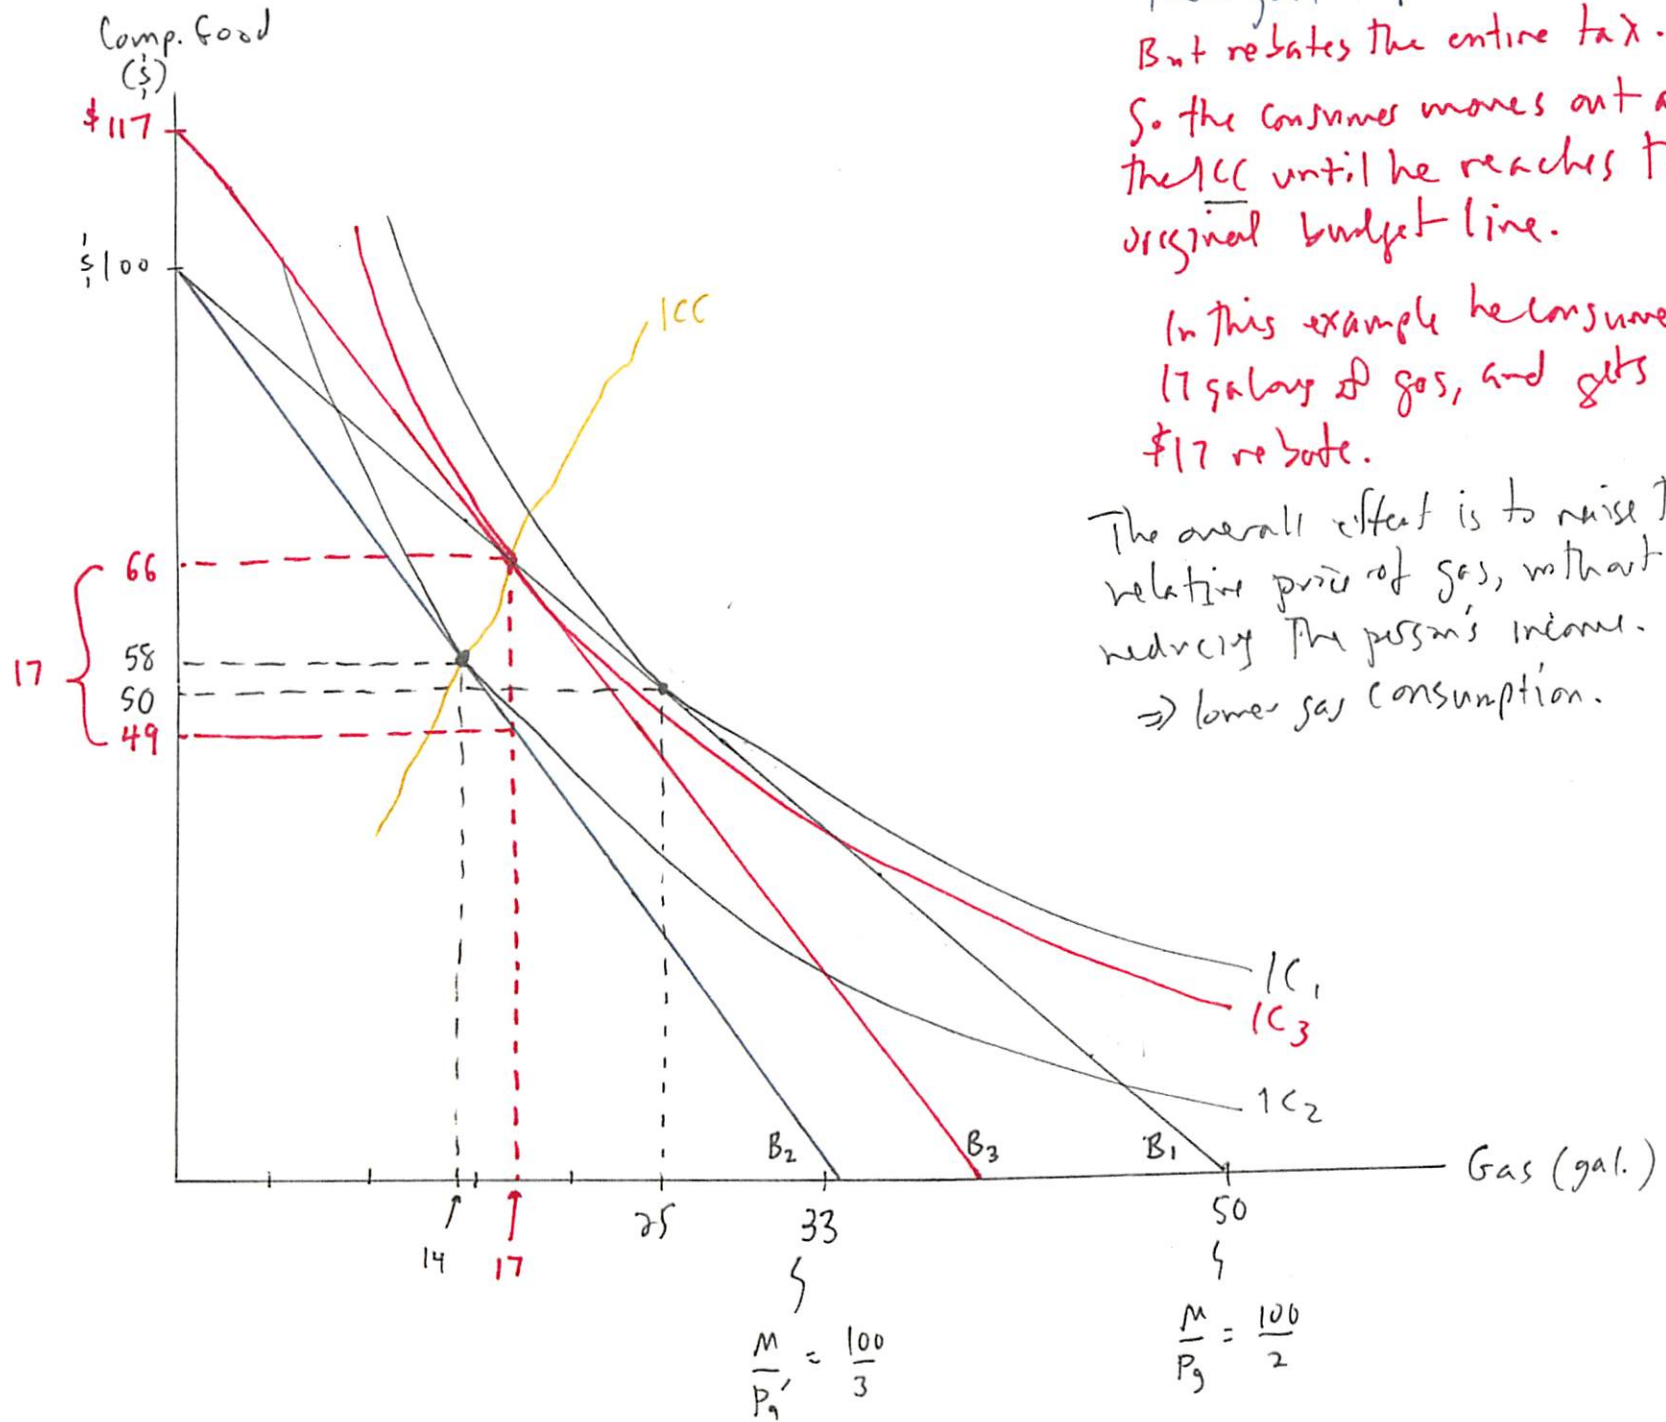 Comp. Good
($)
$117
But rebates the entire tax.
So the consumer moves out
the ICC until he reaches
original budget line.
$100
ICC
In this example he consume
17 galons of gas, and gets
$17 rebate.
The overall effect is to raise
relative price of gas, without
reducing the person's income.
⇒ lower gas consumption.
66
58
17
50
49
IC1
IC3
IC2
B2
B3
B1
Gas (gal.)
14
17
25
33
50
M/Pg' = 100/3
M/Pg = 100/2